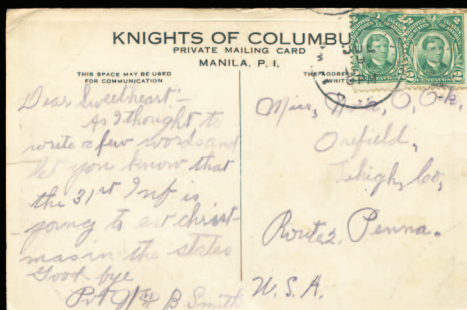 KNIGHTS OF COLUMBU
PRIVATE MAILING CARD
MANILA, P. I.
THIS SPACE MAY BE USED
FOR COMMUNICATION
THE ADDRESS
Dear Sweetheart:-
As I thought to
write a few words and
let you know that
the 31st Inf is
going to eat christ-
mas in the states
Good bye
Pvt B Smith
Miss,
Orefield,
Lehigh, Co,
Route 2. Penna.
U. S. A.